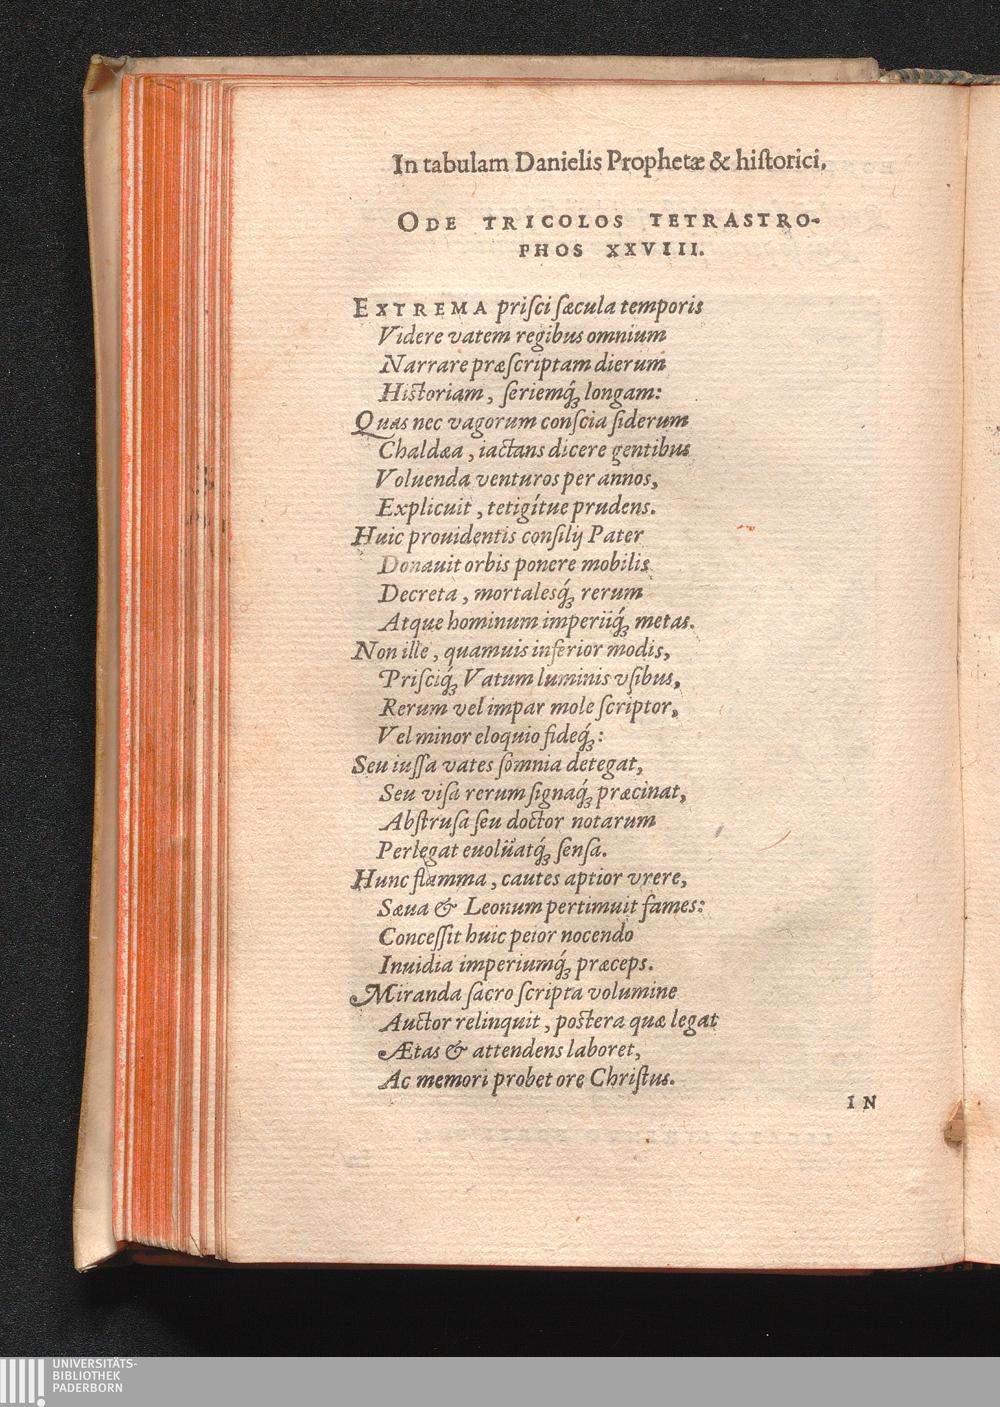 In tabulam Danielis Prophetæ & hiſtorici,
ODE TRICOLOS TETRASTRO-
PHOS XXVIII.
EXTREMA priſci ſæcula temporis
Videre vatem regibus omnium
Narrare præſcriptam dierum
Hiſtoriam, ſeriemq́ꝫ longam:
Quas nec vagorum conſcia ſiderum
Chaldæa, iactans dicere gentibus
Voluenda venturos per annos,
Explicuit, tetigítue prudens.
Huic prouidentis conſilij Pater
Donauit orbis ponere mobilis
Decreta, mortalesq́ꝫ rerum
Atque hominum imperiiq́ꝫ metas.
Non ille, quamuis inferior modis,
Priſciq́ꝫ Vatum luminis vſibus,
Rerum vel impar mole ſcriptor,
Vel minor eloquio fideq́ꝫ:
Seu iuſſa vates ſomnia detegat,
Seu viſa rerum ſignaq́ꝫ præcinat,
Abſtruſa ſeu doctor notarum
Perlegat euolüatq́ꝫ ſenſa.
Hunc flamma, cautes aptior vrere,
Sæua & Leonum pertimuit fames:
Conceſſit huic peior nocendo
Inuidia imperiumq́ꝫ præceps.
Miranda ſacro ſcripta volumine
Auctor relinquit, poſtera quæ legat
Ætas & attendens laboret,
Ac memori probet ore Chriſtus.
IN
UNIVERSITÄTS-
BIBLIOTHEK
PADERBORN